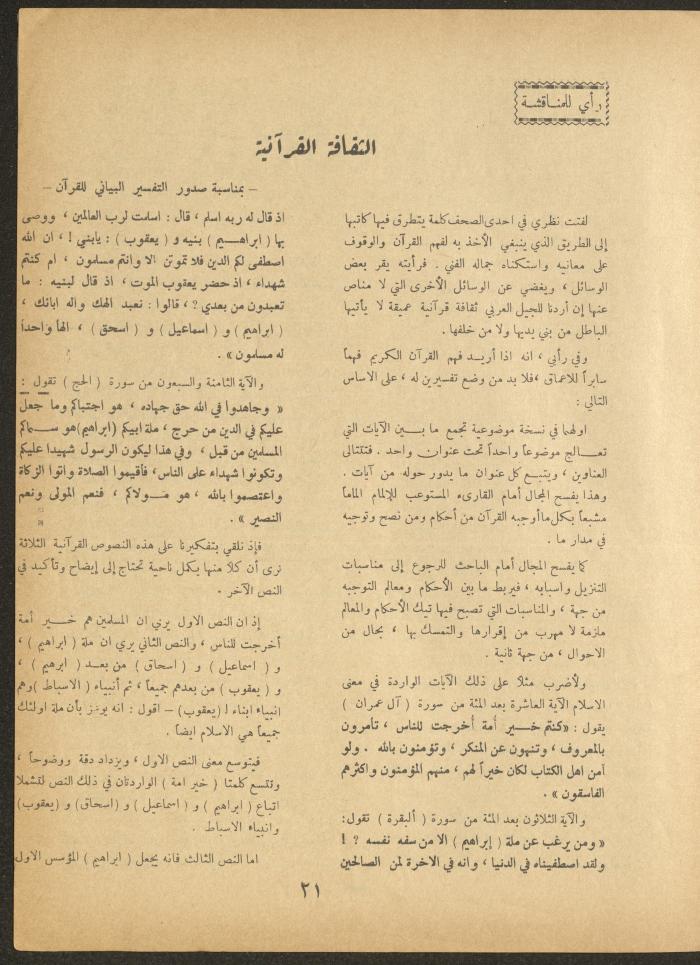 رأي للمناقشة
الثقافة القرآنية
– بمناسبة صدور التفسير البياني للقرآن –
لفتت نظري في احدى الصحف كلمة يتطرق فيها كاتبها
إلى الطريق الذي ينبغي الأخذ به لفهم القرآن والوقوف
على معانيه واستكناه جماله الفني . فرأيته يقر بعض
الوسائل ، ويغضي عن الوسائل الأخرى التي لا مناص
عنها إن أردنا للجيل العربي ثقافة قرآنية عميقة لا يأتيها
الباطل من بني يديها ولا من خلفها .
وفي رأبي ، انه اذا أريد فهم القرآن الكريم فهماً
سابراً للاعماق ، فلا بد من وضع تفسيرين له ، على الاساس
التالي :
اولهما في نسخة موضوعية تجمع ما بين الآيات التي
تعالج موضوعاً واحداً تحت عنوان واحد . فتتتالى
العناوين ، ويتبع كل عنوان ما يدور حوله من آيات .
وهذا يفسح المجال أمام القارىء المستوعب للإلمام الماماً
مشبعاً بكل ما أوجبه القرآن من أحكام ومن نصح وتوجيه
في مدار ما .
كما يفسح المجال أمام الباحث للرجوع إلى مناسبات
التنزيل واسبابه ، فيربط ما بين الأحكام ومعالم التوجيه
من جهة ، والمناسبات التي تصبح فيها تيك الأحكام والمعالم
ملزمة لا مهرب من إقرارها والتمسك بها ، بحال من
الاحوال ، من جهة ثانية .
ولأضرب مثلاً على ذلك الآيات الواردة في معنى
الاسلام الآية العاشرة بعد المئة من سورة ( آل عمران )
يقول : «كنتم خير أمة أخرجت للناس ، تأمرون
بالمعروف ، وتنهون عن المنكر ، وتؤمنون بالله . ولو
آمن اهل الكتاب لكان خيراً لهم ، منهم المؤمنون واكثرهم
الفاسقون » .
والآية الثلاثون بعد المئة من سورة ( ألبقرة ) تقول :
« ومن يرغب عن ملة ( إبراهيم ) الا من سفه نفسه ؟ !
ولقد اصطفيناه في الدنيا ، وانه في الاخرة لمن الصالحين
اذ قال له ربه اسلم ، قال : اسلمت لرب العالمين ، ووصى
بها ( ابراهيم ) بنيه و ( يعقوب ) : يابني ! ، ان الله
اصطفى لكم الدين فلا تموتن الا وانتم مسلمون ، ام كنتم
شهداء ، اذ حضر يعقوب الموت ، اذ قال لبنيه : ما
تعبدون من بعدي ؟ ، قالوا : نعبد الهك واله ابائك ،
( ابراهيم ) و ( اسماعيل ) و ( اسحق ) ، الهاً واحداً
له مسلمون » .
والآية الثامنة والسبعون من سورة ( الحج ) تقول :
« وجاهدوا في الله حق جهاده ، هو اجتباكم وما جعل
عليكم في الدين من حرج ، ملة ابيكم (ابراهيم) هو سماكم
المسلمين من قبل ، وفي هذا ليكون الرسول شهيدا عليكم
وتكونوا شهداء على الناس ، فأقيموا الصلاة واتوا الزكاة
واعتصموا بالله ، هو مولاكم ، فنعم المولى ونعم
النصير » .
فإذ نلقي بتفكيرنا على هذه النصوص القرآنية الثلاثة
نرى أن كلا منها يكمل ناحية تحتاج إلى إيضاح وتأكيد في
النص الآخر .
إذ ان النص الاول يري ان المسلمين هم خير أمة
أخرجت للناس ، والنص الثاني يري ان ملة ( ابراهيم ) ،
و ( اسماعيل ) و ( اسحاق ) من بعد ( ابرهيم ) ،
و ( يعقوب ) من بعدهم جميعاً ، ثم أنبياء ( الاسباط ) وهم
انبياء ابناء لـ (يعقوب) – اقول : انه يوعز بأن ملة اولئك
جميعاً هي الاسلام ايضاً .
فيتوسع معنى النص الاول ، ويزداد دقة ووضوحاً ،
وتتسع كلمتا ( خير امة ) الواردتان في ذلك النص لتشملا
اتباع ( ابراهيم ) و ( اسماعيل ) و (اسحاق) و (يعقوب)
وانبياء الاسباط .
اما النص الثالث فانه يجعل ( ابراهيم ) المؤسس الاول
٢١